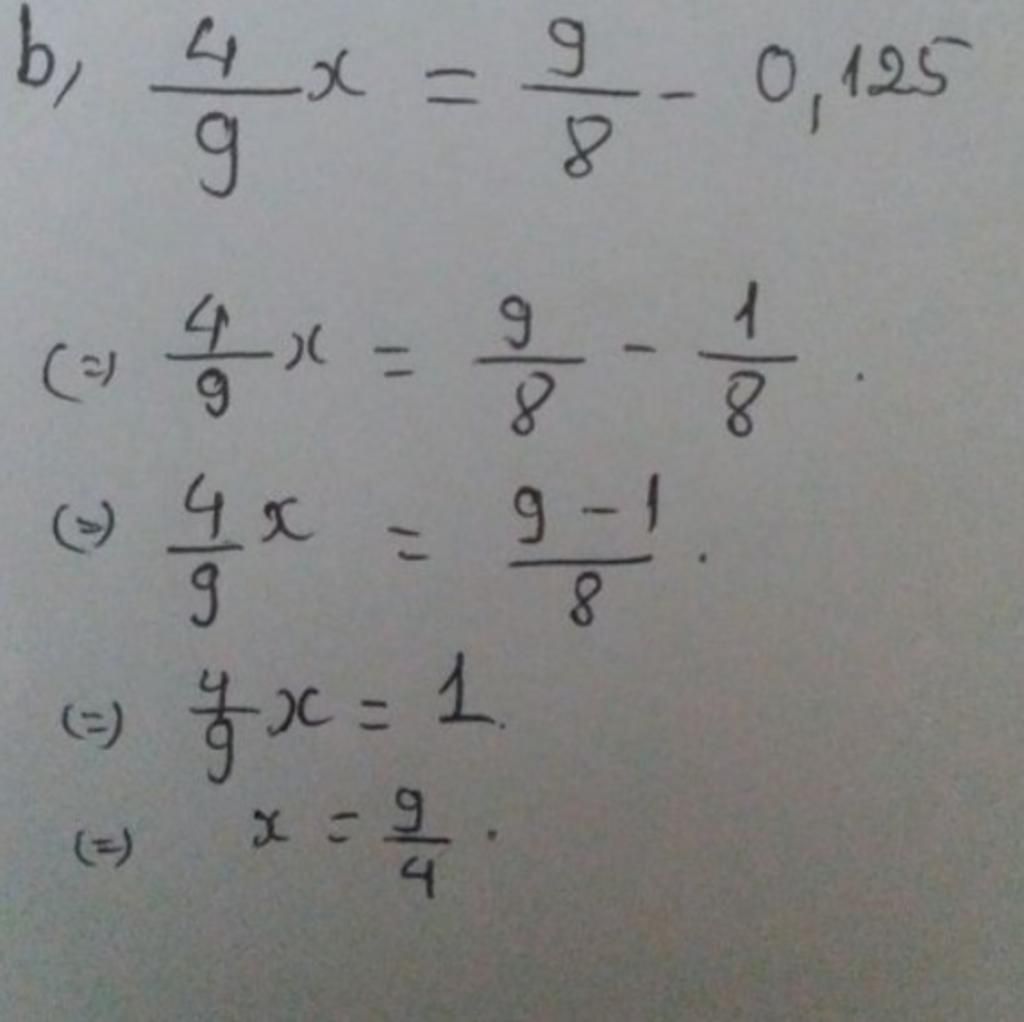 b, 4/9 x = 9/8 - 0,125
(=) 4/9 x = 9/8 - 1/8 .
(=) 4/9 x = 9-1/8 .
(=) 4/9 x = 1.
(=) x = 9/4 .